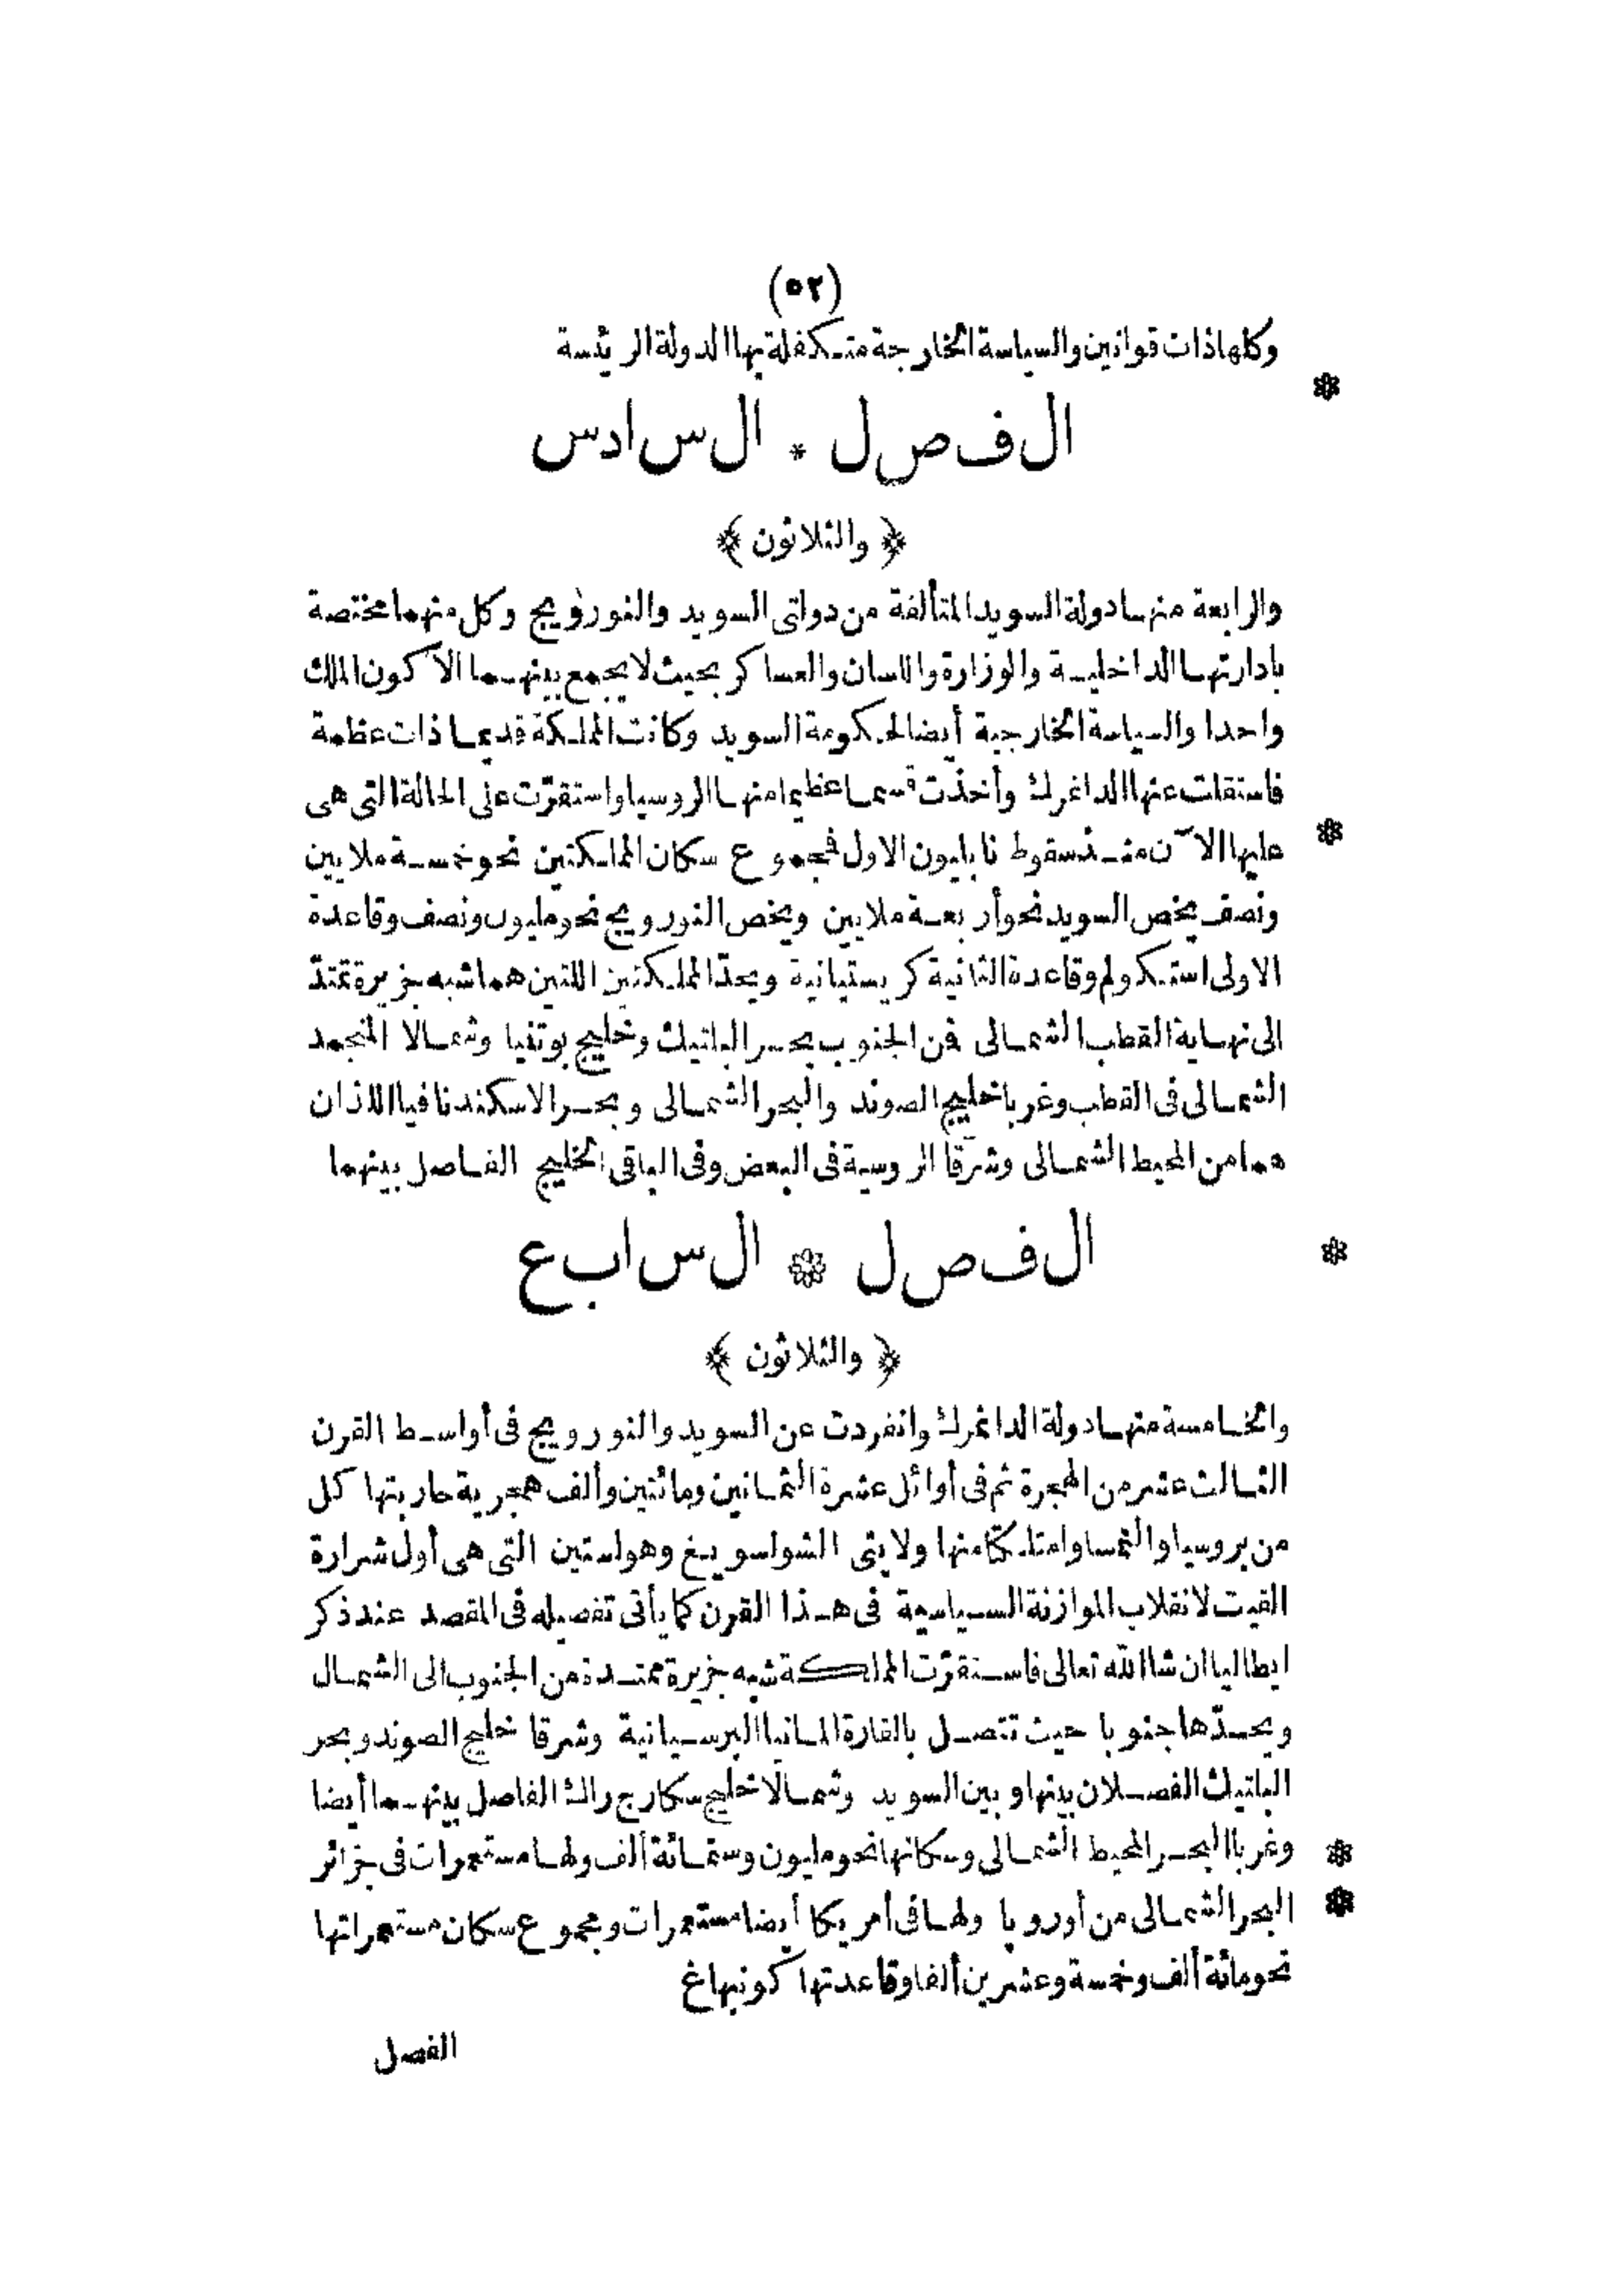 (٥٢)
وكلها ذات قوانين والسياسة الخارجة متكفلة بها الدولة الرئيسة
*
الفصل * السادس
﴿ والثلاثون ﴾
والرابعة منها دولة السويد المتألفة من دولتى السويد والنورويج وكل منهما مختصة
بادارتها الداخلية والوزارة واللسان والعساكر بحيث لا يجمع بينهما الا كون الملك
واحدا والسياسة الخارجية أيضا لحكومة السويد وكانت المملكة قديما ذات عظمة
فاستقلت عنها الدانمرك وأخذت قسما عظيما منها الروسيا واستقرّت على الحالة التى هى
عليها الآن منذ سقوط نابليون الاول فمجموع سكان المملكتين نحو خمسة ملايين *
ونصف يخص السويد نحو أربعة ملايين ويخص النورويج نحو مليون ونصف وقاعدة
الاولى استكولم وقاعدة الثانية كريستيانية ويحدّ المملكتين اللتين هما شبه جزيرة تمتدّ
الى نهاية القطب الشمالى فمن الجنوب بحر البلتيك وخليج بوتنيا وشمالا المنجمد
الشمالى فى القطب وغربا خليج الصوند والبحر الشمالى وبحر الاسكندنافيا اللذان
هما من المحيط الشمالى وشرقا الروسية فى البعض وفى الباقى الخليج الفاصل بينهما
الفصل * السابع *
﴿ والثلاثون ﴾
والخامسة منها دولة الدانمرك وانفردت عن السويد والنورويج فى أواسط القرن
الثالث عشر من الهجرة ثم فى أوائل عشرة الثمانين ومائتين وألف هجرية حاربتها كل
من بروسيا والنمسا وامتلكتا منها ولايتى الشولسويغ وهولستين التى هى أول شرارة
القيت لانقلاب الموازنة السياسية فى هذا القرن كما يأتى تفصيله فى المقصد عند ذكر
ايطاليا ان شاالله تعالى فاستقرّت المملكة شبه جزيرة ممتدة من الجنوب الى الشمال
ويحدّها جنوبا حيث تتصل بالقارة المانيا البرسيانية وشرقا خليج الصوند وبحر
البلتيك الفصلان بينها وبين السويد وشمالا خليج سكارج راك الفاصل بينهما أيضا
وغربا البحر المحيط الشمالى وسكانها نحو مليون وستمائة ألف ولها مستعمرات فى جزائر *
البحر الشمالى من أوروپا ولها فى أمريكا أيضا مستعمرات ومجموع سكان مستعمراتها *
نحو مائة ألف وخمسة وعشرين ألفا وقاعدتها كونبهاغ
الفصل